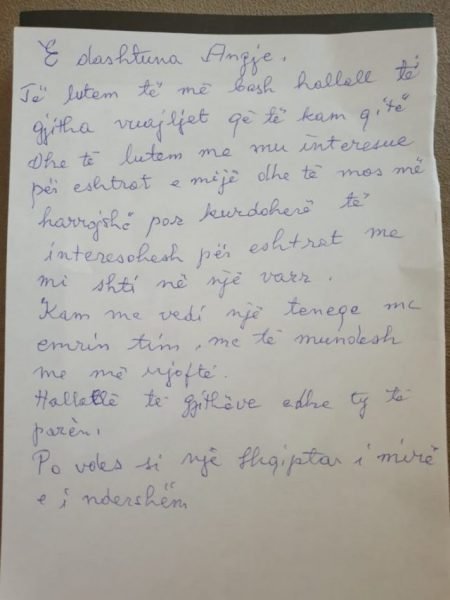 E dashtuna Angje.
Të lutem të më bash hallall të
gjitha vuajtjet që të kam q
Dhe të lutem me mu interesue
për eshtrat e mijë dhe të mos më
harrojshë por kurdoherë të
interesohesh për eshtrat me
mi shti në një varr.
Kam me vedi një teneqe me
emrin tim, me të mundesh
me më njoftë.
Hallallë të gjithëve edhe ty të
parën,
Po vdes si një Shqiptar i mirë
e i ndershëm